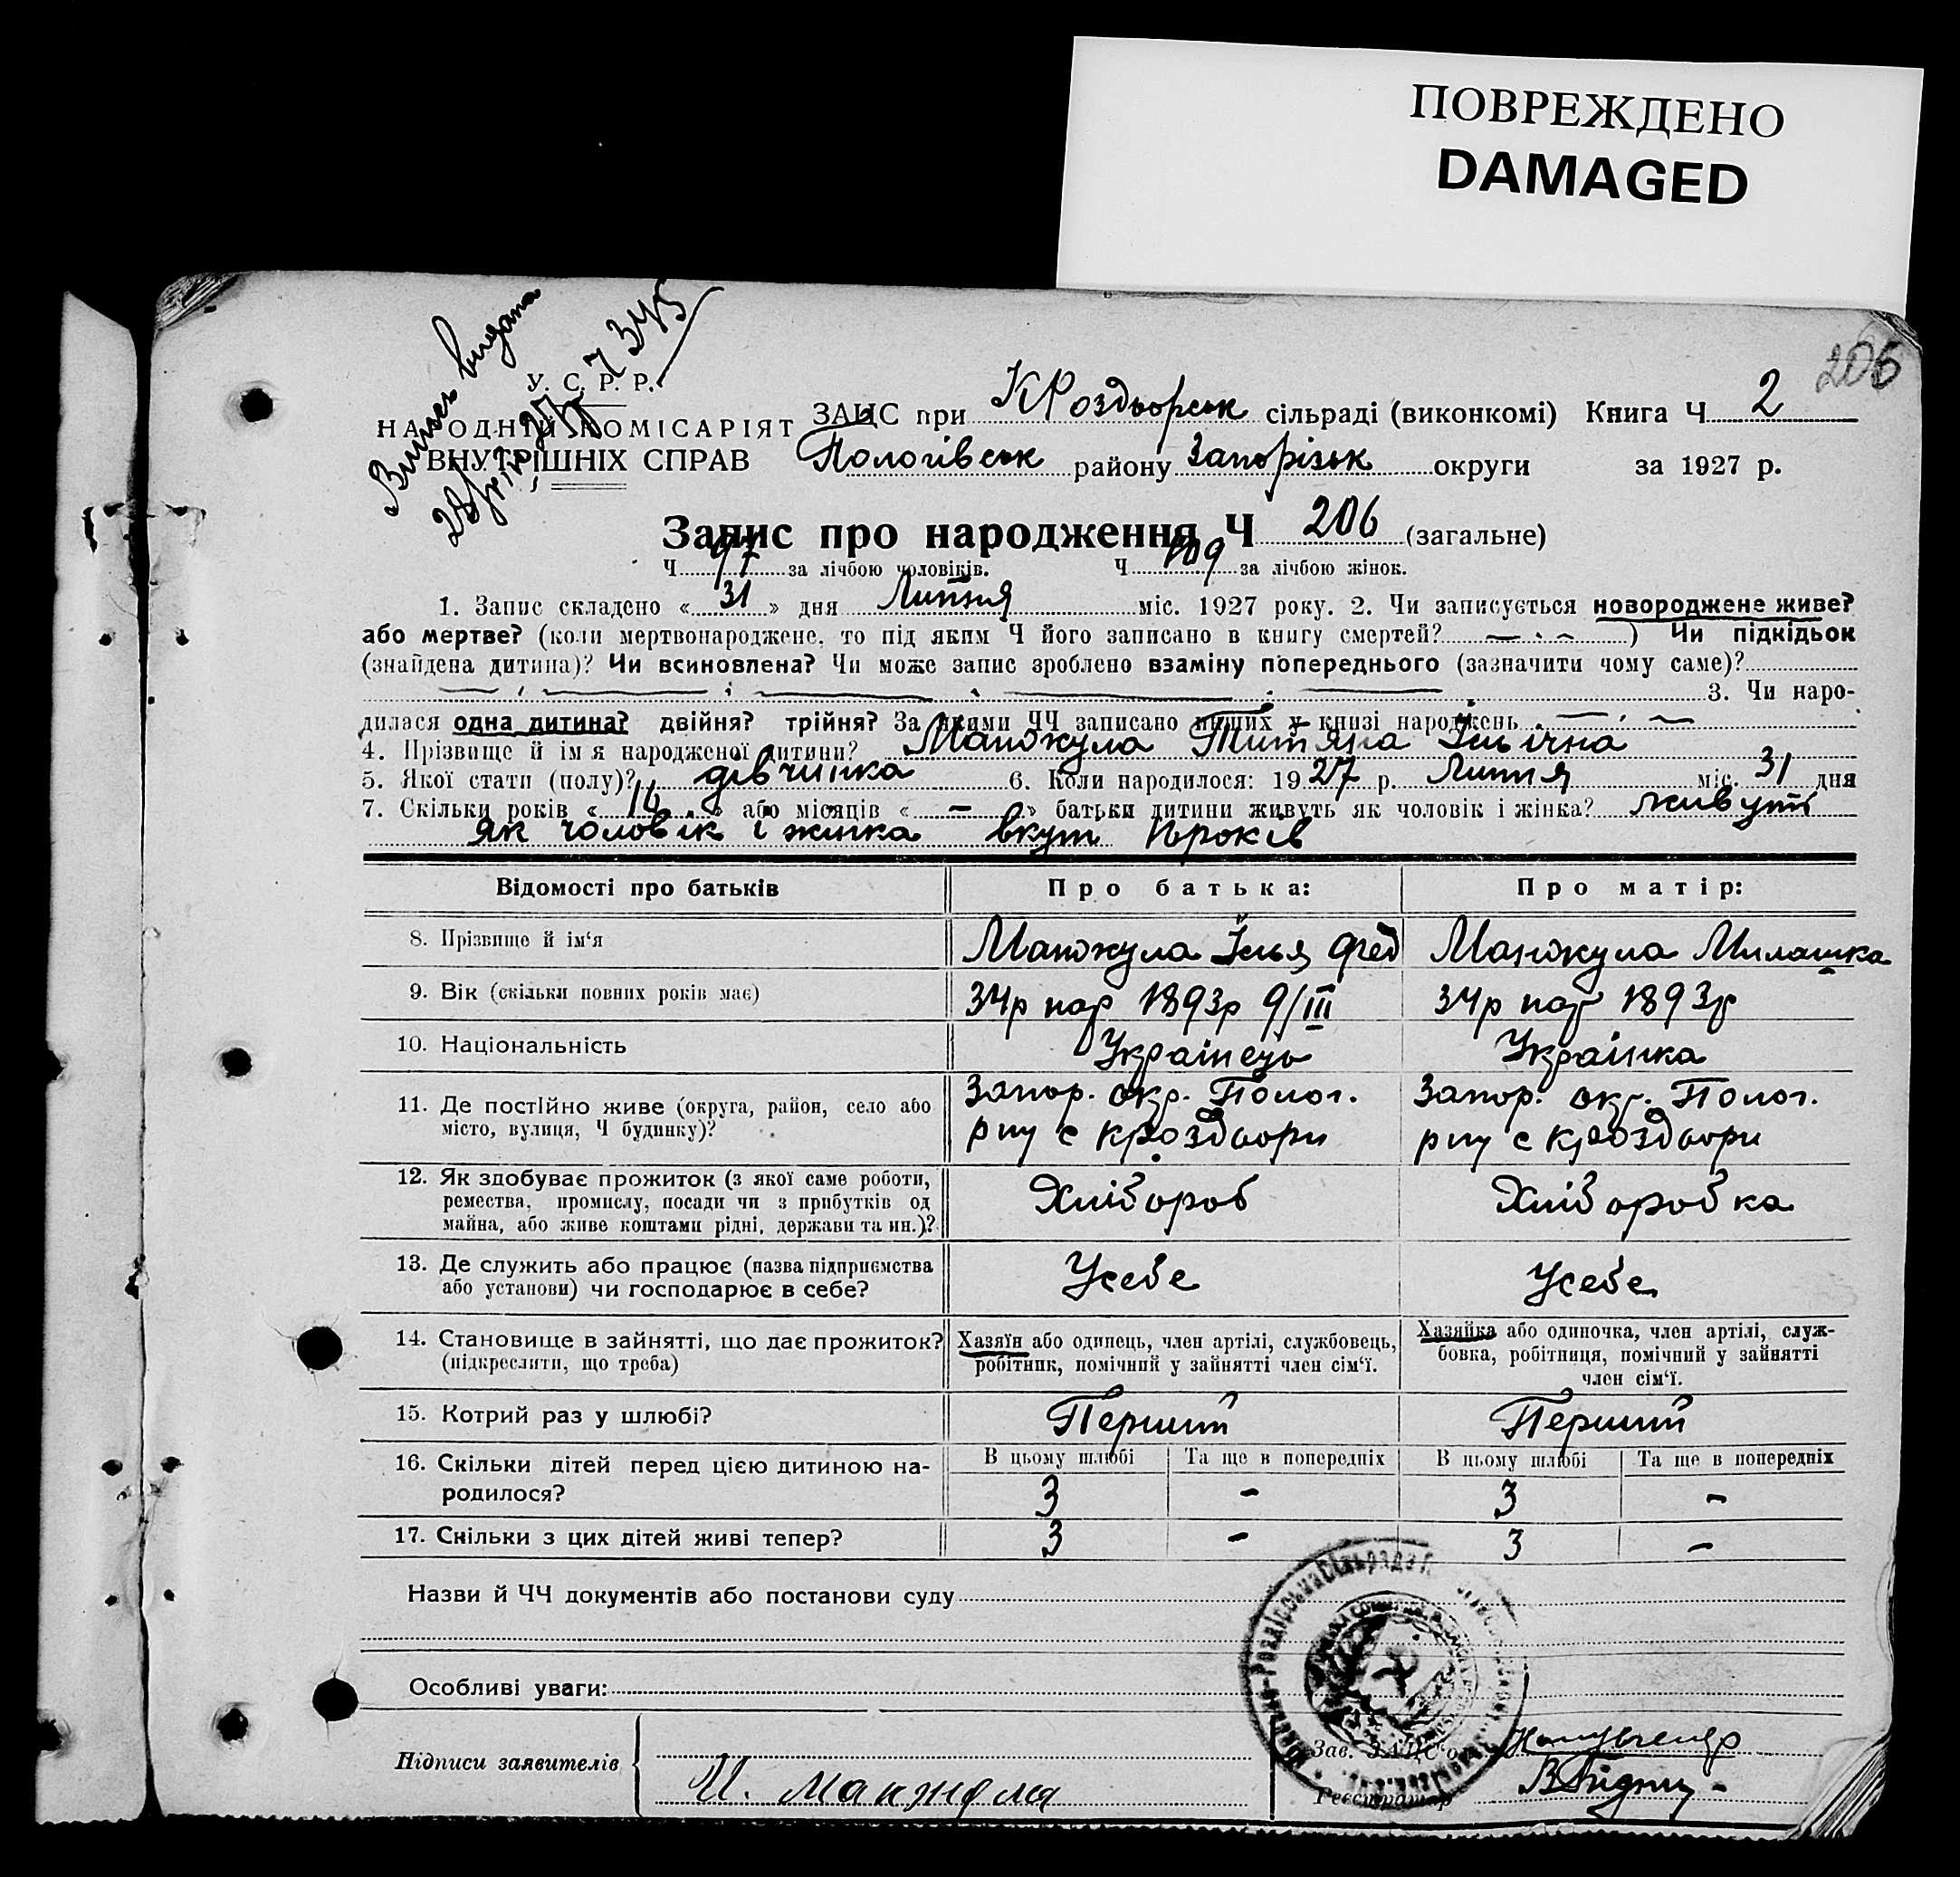 ПОВРЕЖДЕНО
DAMAGED
206
Виписъ видана
345
У. С. Р. Р.
НАРОДНІЙ КОМІСАРІЯТ
ВНУТРІШНІХ СПРАВ
ЗАЦС при КРоздорськ сільраді (виконкомі) Книга Ч 2
Пологівськ району Запорізьк округи за 1927 р.
Запис про народження Ч 206 (загальне)
Ч 97 за лічбою чоловіків. Ч 109 за лічбою жінок.
1. Запис складено « 31 » дня Липня міс. 1927 року. 2. Чи записується новороджене живе?
або мертве? (коли мертвонароджене, то під яким Ч його записано в книгу смертей? — · ~ ) Чи підкідьок
(знайдена дитина)? Чи всиновлена? Чи може запис зроблено взаміну попереднього (зазначити чому саме)?
3. Чи наро-
дилася одна дитина? двійня? трійня? За якими ЧЧ записано инших у книзі народжень
4. Прізвище й ім'я народженої дитини? Манжула Титяна Ільічна
5. Якої стати (полу)? дівчинка 6. Коли народилося: 1927 р. Липня міс. 31 дня
7. Скільки років « 16 » або місяців « – » батьки дитини живуть як чоловік і жінка? живуть
як чоловік і жінка вкупі років
Відомості про батьків Про батька: Про матір:
8. Прізвище й ім'я Манжула Ілья Фед Манжула Милашка
9. Вік (скільки повних років має) 34р нар 1893р 9/III 34р нар 1893р
10. Національність Украінець Украінка
11. Де постійно живе (округа, район, село або Запор. окр. Полог. Запор. окр. Полог.
місто, вулиця, Ч будинку)? р-ну с Кроздори р-ну с Кроздори
12. Як здобуває прожиток (з якої саме роботи, Хлібороб Хліборобка
ремества, промислу, посади чи з прибутків од
майна, або живе коштами рідні, держави та ин.)?
13. Де служить або працює (назва підприємства Усебе Усебе
або установи) чи господарює в себе?
14. Становище в зайнятті, що дає прожиток? Хазяїн або одинець, член артілі, службовець, Хазяйка або одиночка, член артілі, служ-
(підкреслити, що треба) робітник, помічний у зайнятті член сім'ї. бовка, робітниця, помічний у зайнятті
член сім'ї.
15. Котрий раз у шлюбі? Перший Перший
16. Скільки дітей перед цією дитиною на- В цьому шлюбі Та ще в попередніх В цьому шлюбі Та ще в попередніх
родилося? 3 - 3 -
17. Скільки з цих дітей живі тепер? 3 - 3 -
Назви й ЧЧ документів або постанови суду
Особливі уваги:
Підписи заявителів И. Манжола
Зав. ЗАЦС'о
Реєстратор